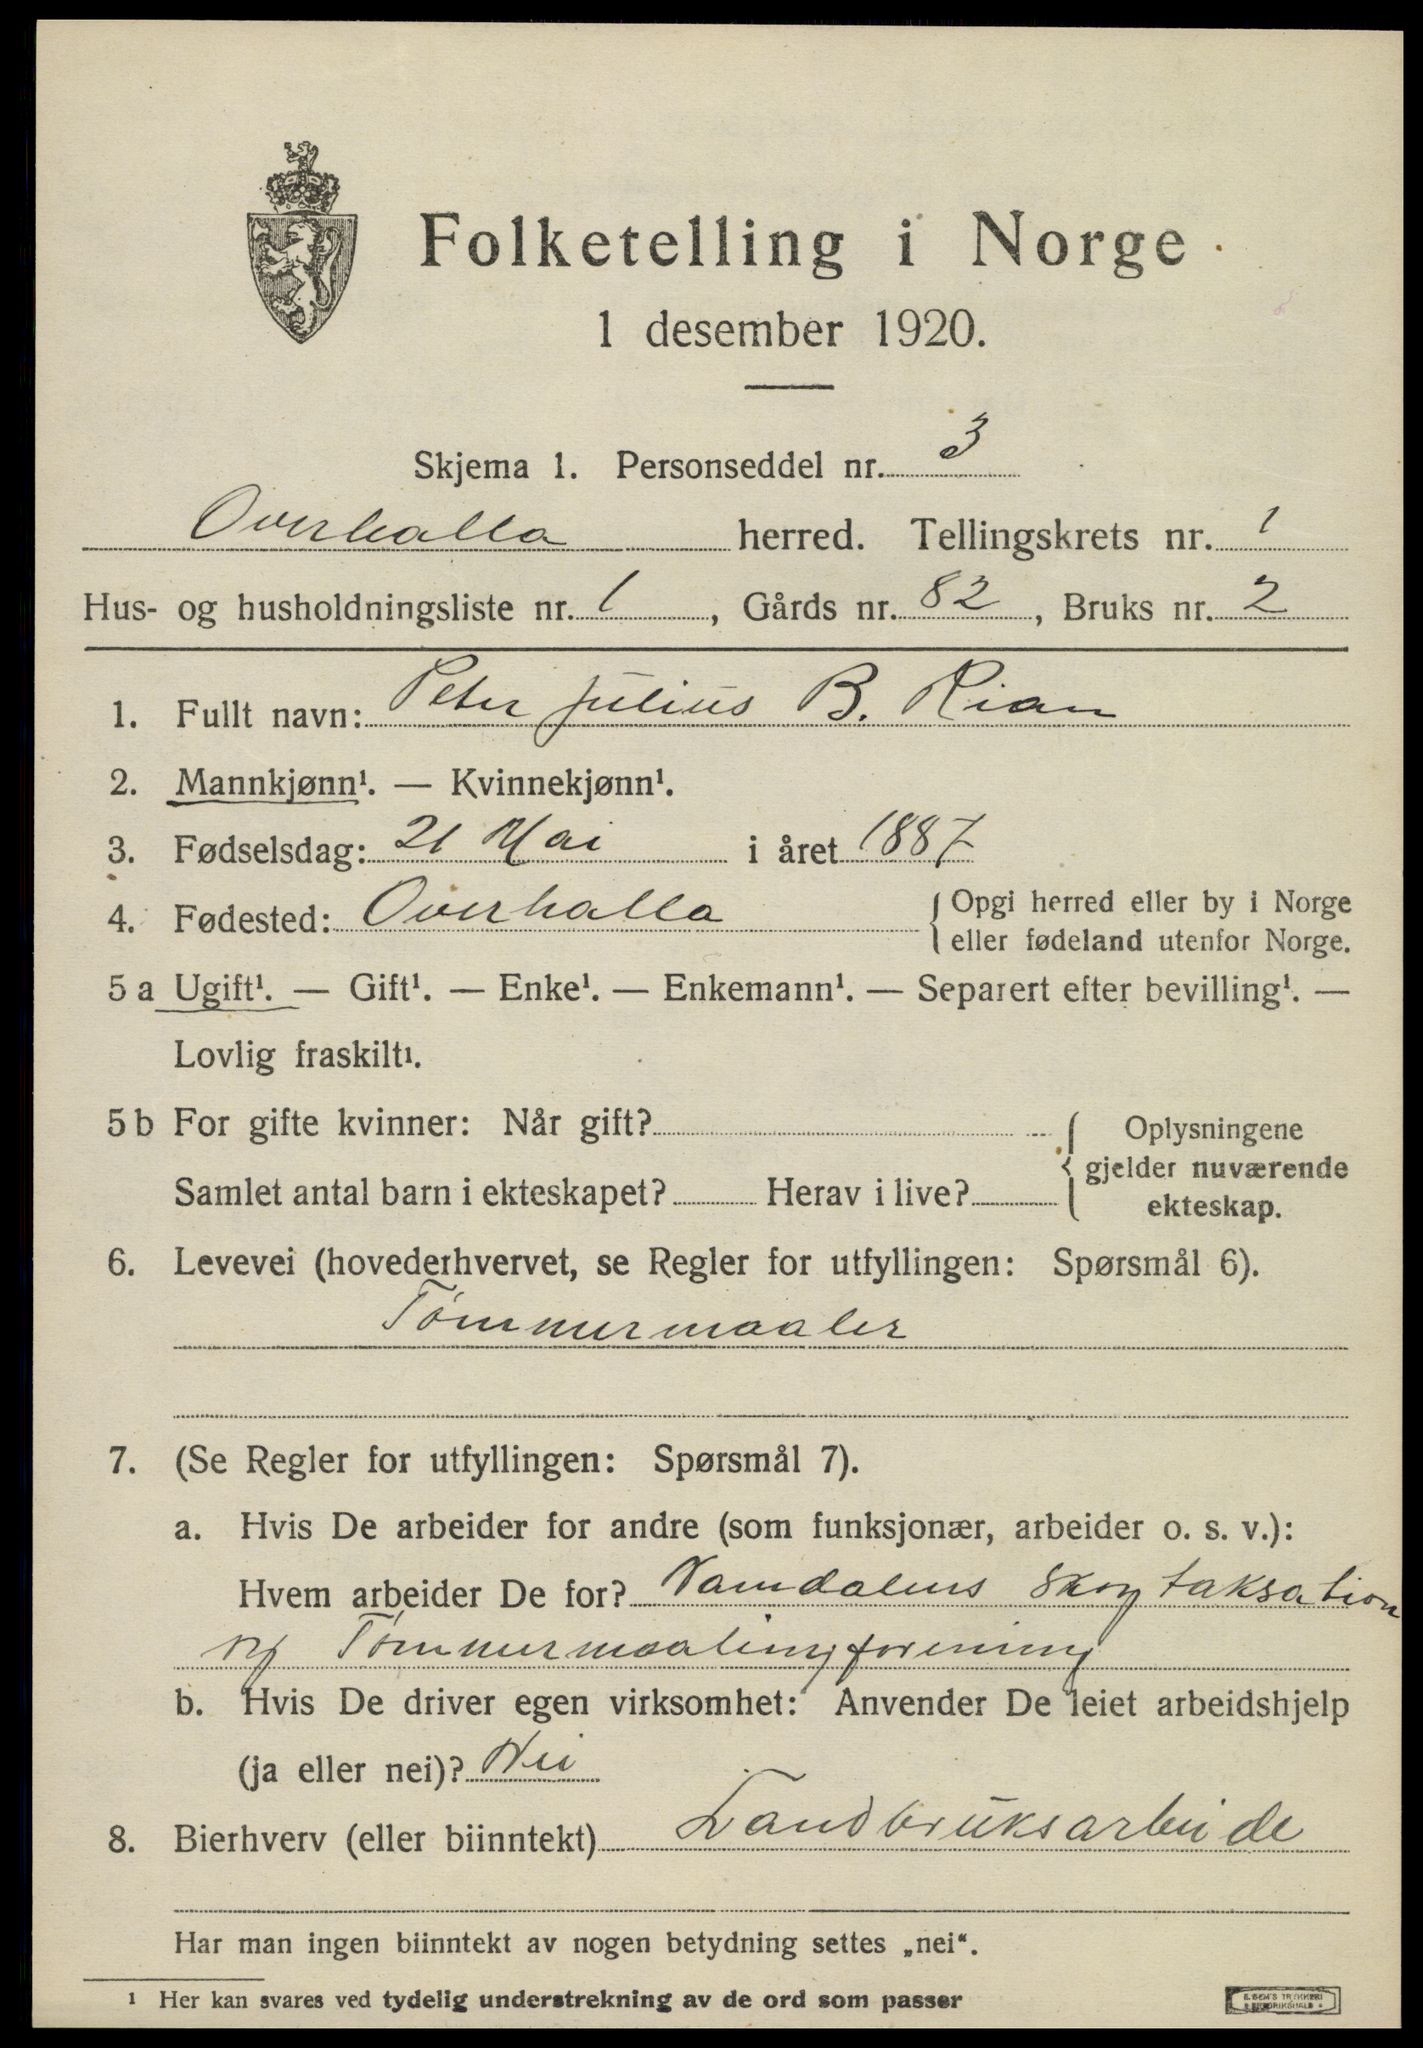 Folketelling i Norge
1 desember 1920.
Skjema 1. Personseddel nr. 3
Overhalla herred. Tellingskrets nr. 1
Hus- og husholdningsliste nr. 1, Gårds nr. 82, Bruks nr. 2
1. Fullt navn: Peter Julius B. Rian
2. Mannkjønn¹. — Kvinnekjønn¹.
3. Fødselsdag: 21 Mai i året 1887
4. Fødested: Overhalla {Opgi herred eller by i Norge
eller fødeland utenfor Norge.
5 a Ugift¹. — Gift¹. — Enke¹. — Enkemann¹. — Separert efter bevilling¹. —
Lovlig fraskilt¹.
5 b For gifte kvinner: Når gift?
Samlet antal barn i ekteskapet? Herav i live?
Oplysningene
gjelder nuværende
ekteskap.
6. Levevei (hovederhvervet, se Regler for utfyllingen: Spørsmål 6).
Tømmermaaler
7. (Se Regler for utfyllingen: Spørsmål 7).
a. Hvis De arbeider for andre (som funksjonær, arbeider o. s. v.):
Hvem arbeider De for? Namdalens skogtaksation
og Tømmermaalingforening
b. Hvis De driver egen virksomhet: Anvender De leiet arbeidshjelp
(ja eller nei)? Nei
8. Bierhverv (eller biinntekt) Landbruksarbeide
Har man ingen biinntekt av nogen betydning settes „nei“.
¹ Her kan svares ved tydelig understrekning av de ord som passer